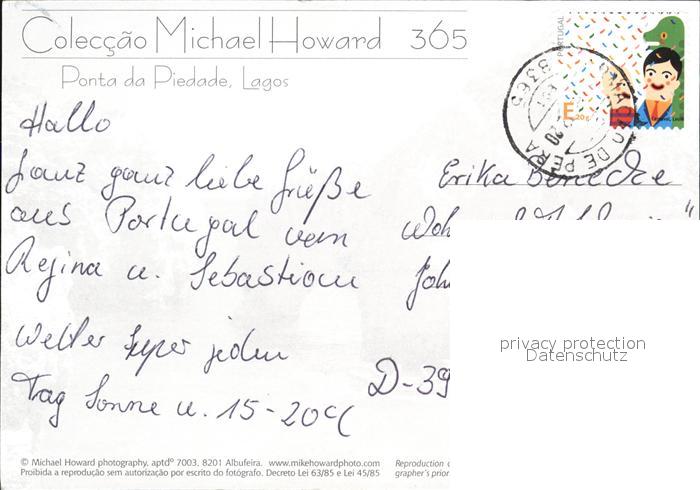 Colecção Michael Howard 365
Ponta da Piedade, Lagos
PORTUGAL
E 20g
8365
DE PERA
Hallo
Ganz ganz liebe Grüße
aus Portugal von
Regina u. Sebastian
Wetter super jeden
Tag Sonne u. 15-20°C
Erika Benecke
D-39
privacy protection
Datenschutz
© Michael Howard photography, aptdº 7003, 8201 Albufeira. www.mikehowardphoto.com
Proibida a reprodução sem autorização por escrito do fotógrafo. Decreto Lei 63/85 e Lei 45/85
Reproduction
grapher's prior